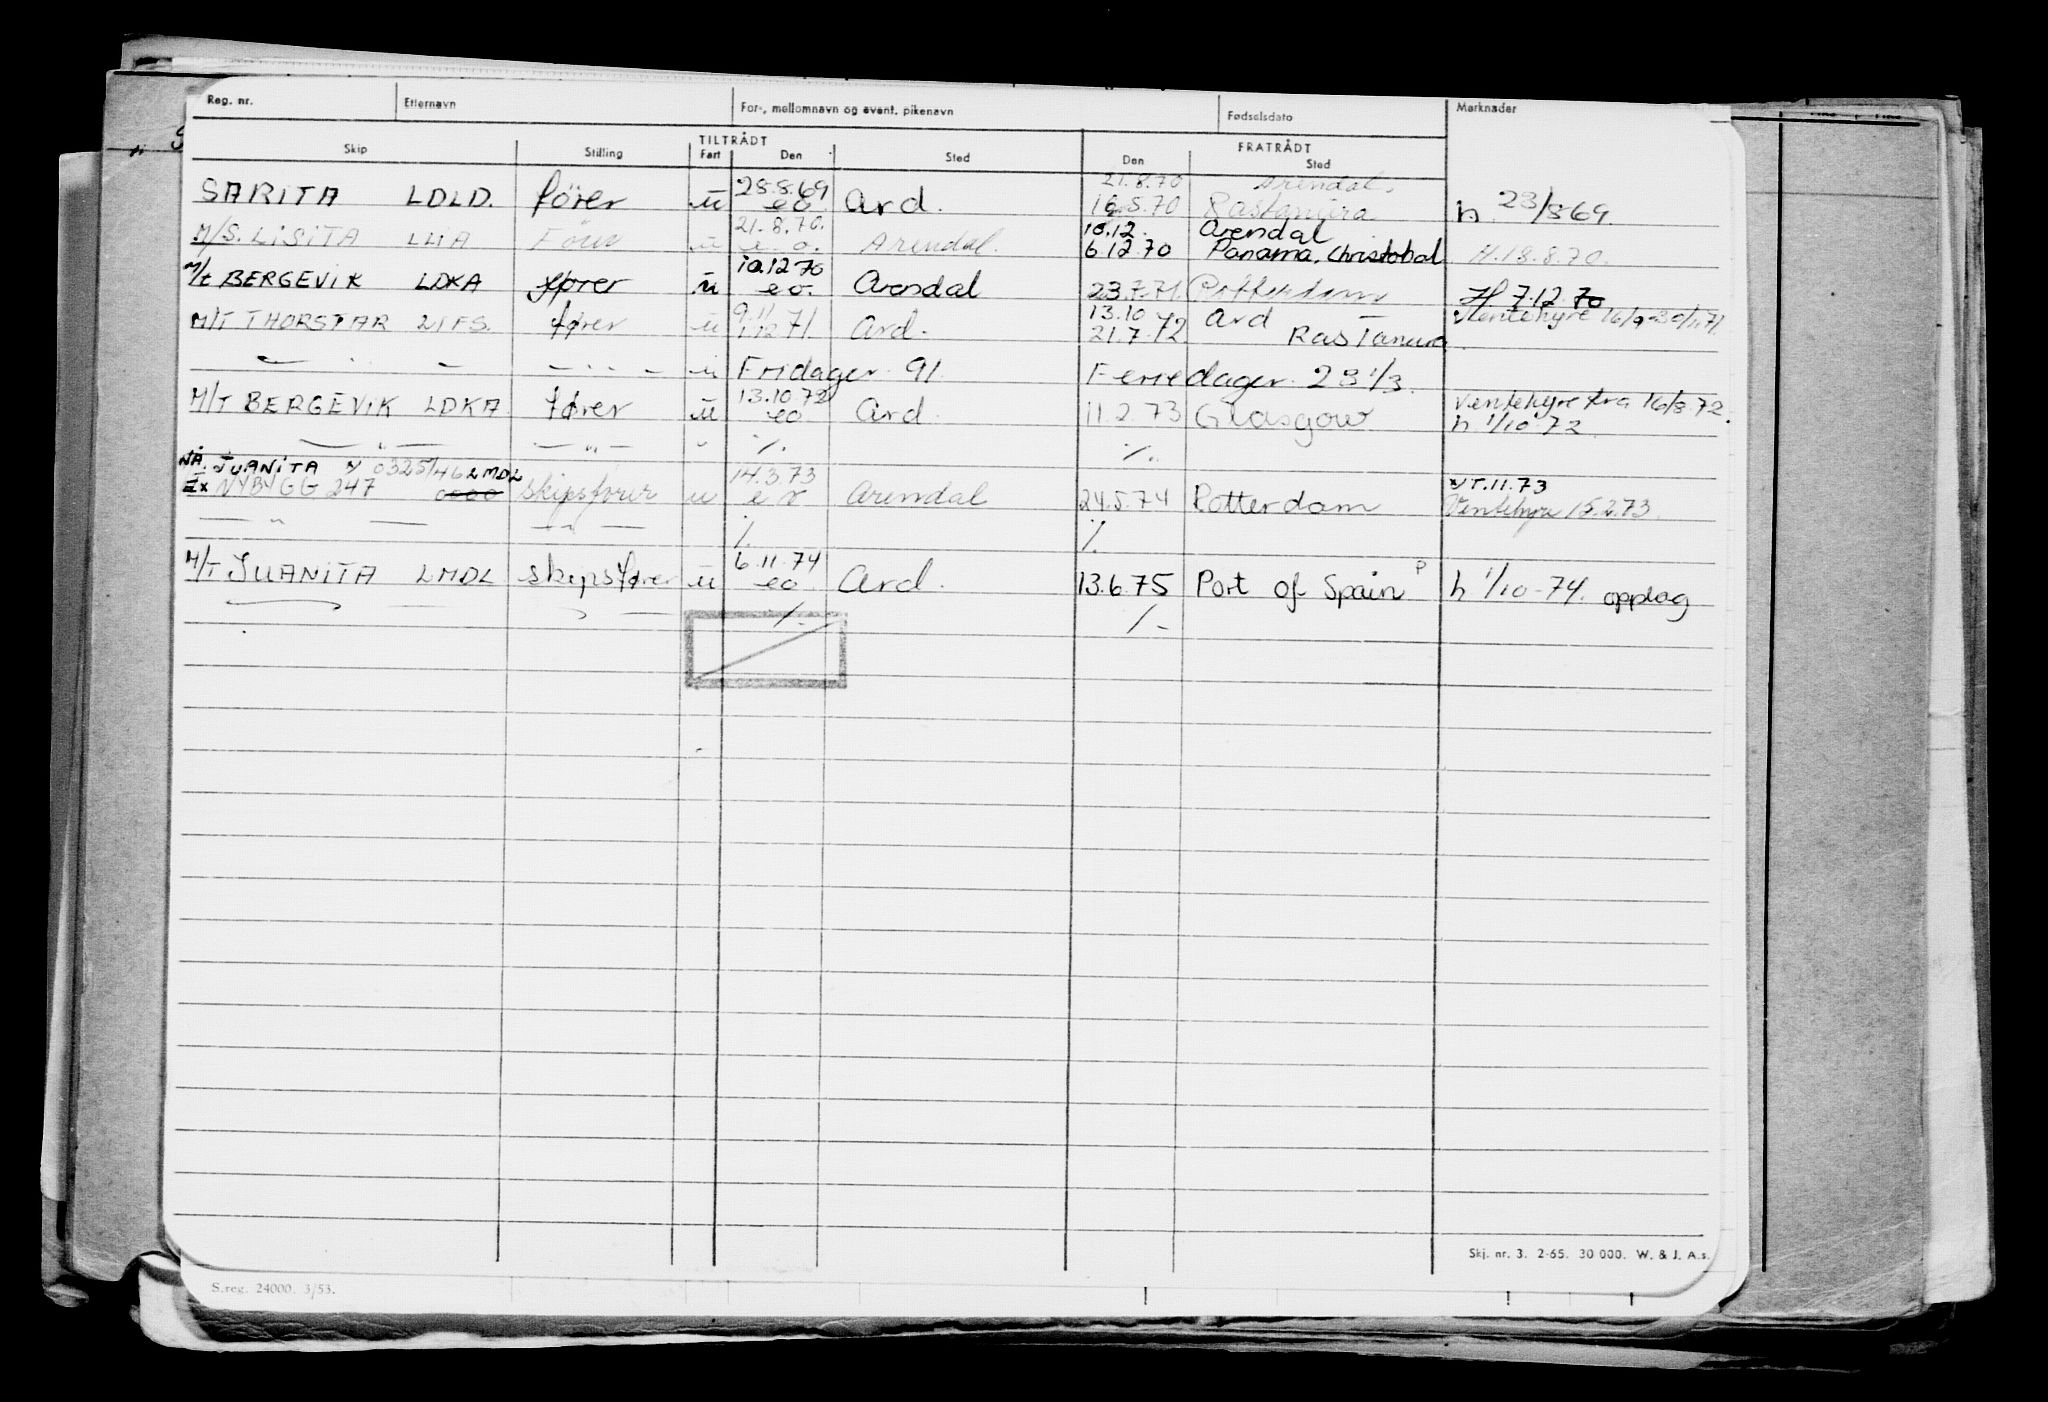 Reg. nr. Etternavn For-, mellomnavn og event. pikenavn Fødselsdato Merknader
TILTRÅDT FRATRÅDT
Skip Stilling Fart Den Sted Den Sted
28.8.69 21.8.70 Arendal.
SARITA LDLD. förer u eo. Ard. 16.8.70 Rastanura h. 23/8 69.
21.8.70. 10.12. Arendal
M/S. LISITA u e.o. Arendal. 6.12.70 Panama, Christobal H.18.8.70.
10.12 70
M/t BERGEVIK LDKA fører u eo. Arendal 23.7.71. Rotterdam H. 7.12.70
9.11 13.10 Ard Ventehyre 16/9-30/11.71
M/T THORSTAR LIFS. fører u 1.12 71. Ard. 21.7.72 RasTanura
— " — — " — u Fridager 91 Feriedager. 28 1/3.
13.10.72 Ventehyre fra 16/8.72.
M/T BERGEVIK LDKA fører u eo. Ard. 11.2.73 Glasgow h 1/10 72
— " — — " — " ⁒ ⁒
NÅ. JUANITA 0325/46 LMDL 14.3.73 11.73
Ex NYBYGG 247 0000 skipsfører u Arendal 24.5.74 Rotterdam Ventehyre 15.2.73.
— " — — " — ⁒ ⁒
6.11.74 P
M/T JUANITA LMDL skipsfører u eo. Ard. 13.6.75 Port of Spain h 1/10-74. opplag
⁒ ⁒
Skj. nr. 3. 2-65. 30 000. W. & J. A.s.
S.reg. 24000. 3/53.